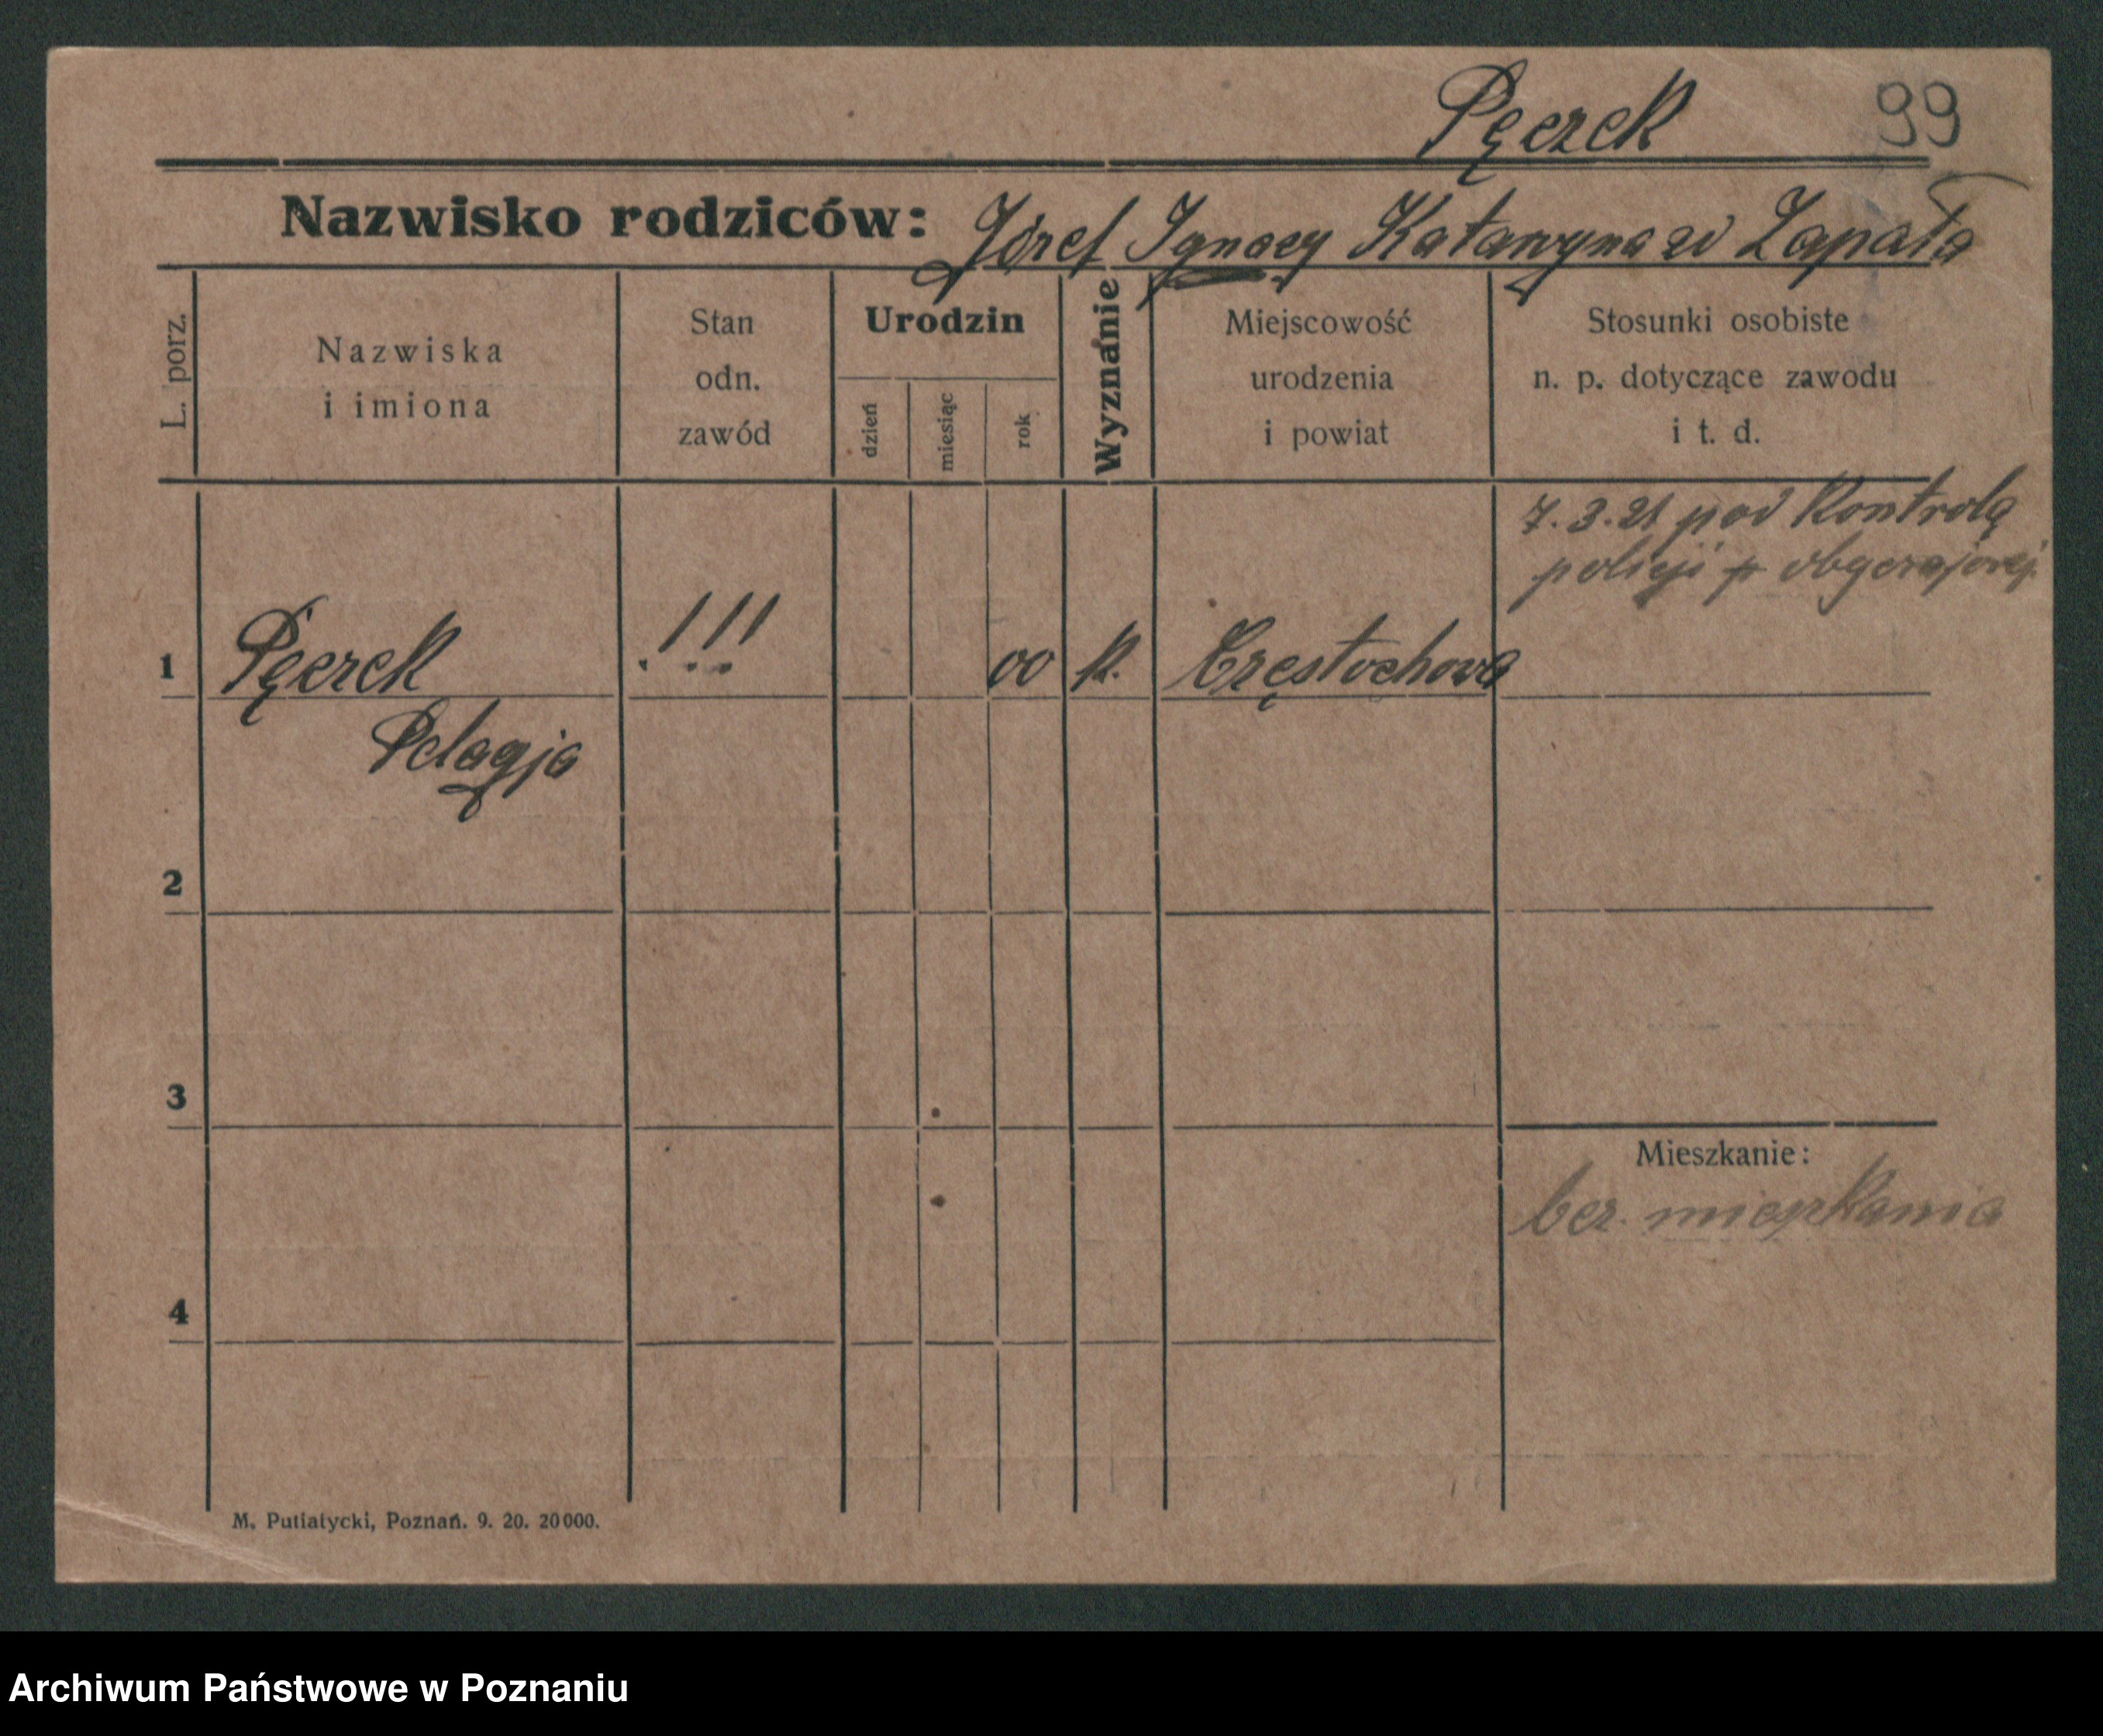 Pęczek 99
Nazwisko rodziców: Józef Ignacy Katarzyna zd Zapała
L. porz.
Nazwiska
i imiona
Stan
odn.
zawód
Urodzin
dzień
miesiąc
rok
Wyznanie
Miejscowość
urodzenia
i powiat
Stosunki osobiste
n. p. dotyczące zawodu
i t. d.
7.3.21 pod Kontrolą
policji obyczajowej.
1 Pęczek !!! 00 k. Częstochowa
Pelagja
2
3
Mieszkanie:
bez. mieszkania
4
M. Putiatycki, Poznań. 9. 20. 20000.
Archiwum Państwowe w Poznaniu